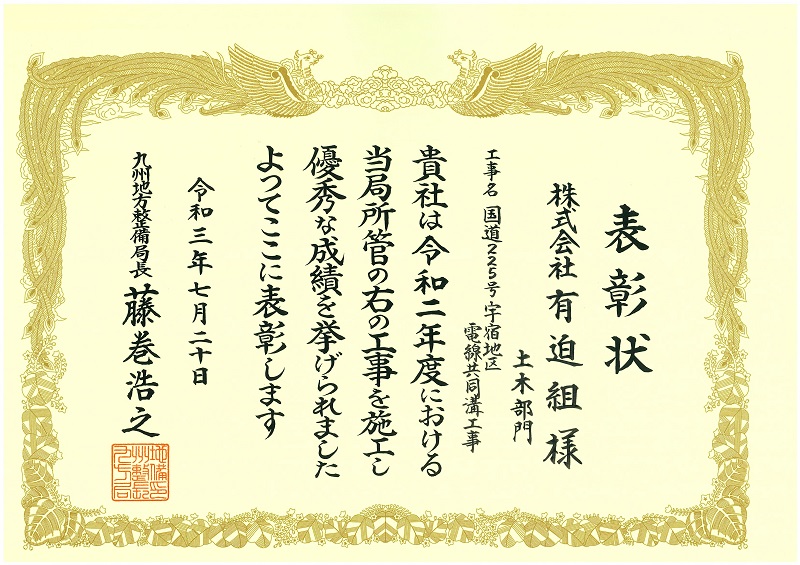 表彰状
株式会社有迫組様
土木部門
工事名 国道225号宇宿地区
電線共同溝工事
貴社は令和二年度における
当局所管の右の工事を施工し
優秀な成績を挙げられました
よってここに表彰します
令和三年七月二十日
九州地方整備局長 藤巻浩之